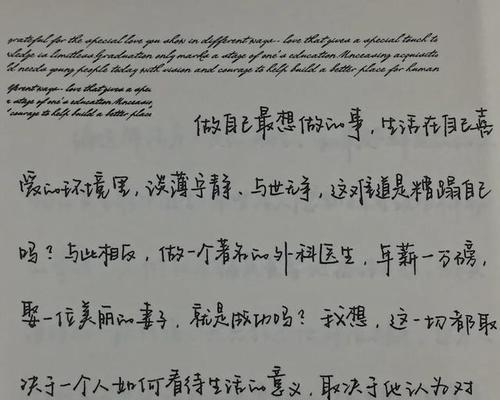 grateful for the special love you show in different ways-- love that gives a special touch to
ledge is limitless Graduation only marks a stage of one's education Unceasing acquisitio
d needs young people today with vision and courage to help build a better place for human
fferent ways-- love that gives a spec
s a stage of one's education Unceasin
courage to help build a better place
做自己最想做的事，生活在自己喜
爱的环境里，淡薄宁静、与世无争，这难道是糟蹋自己
吗？与此相反，做一个著名的外科医生，年薪一万磅，
娶一位美丽的妻子，就是成功吗？我想，这一切都取
决于一个人如何看待生活的意义，取决于他认为对